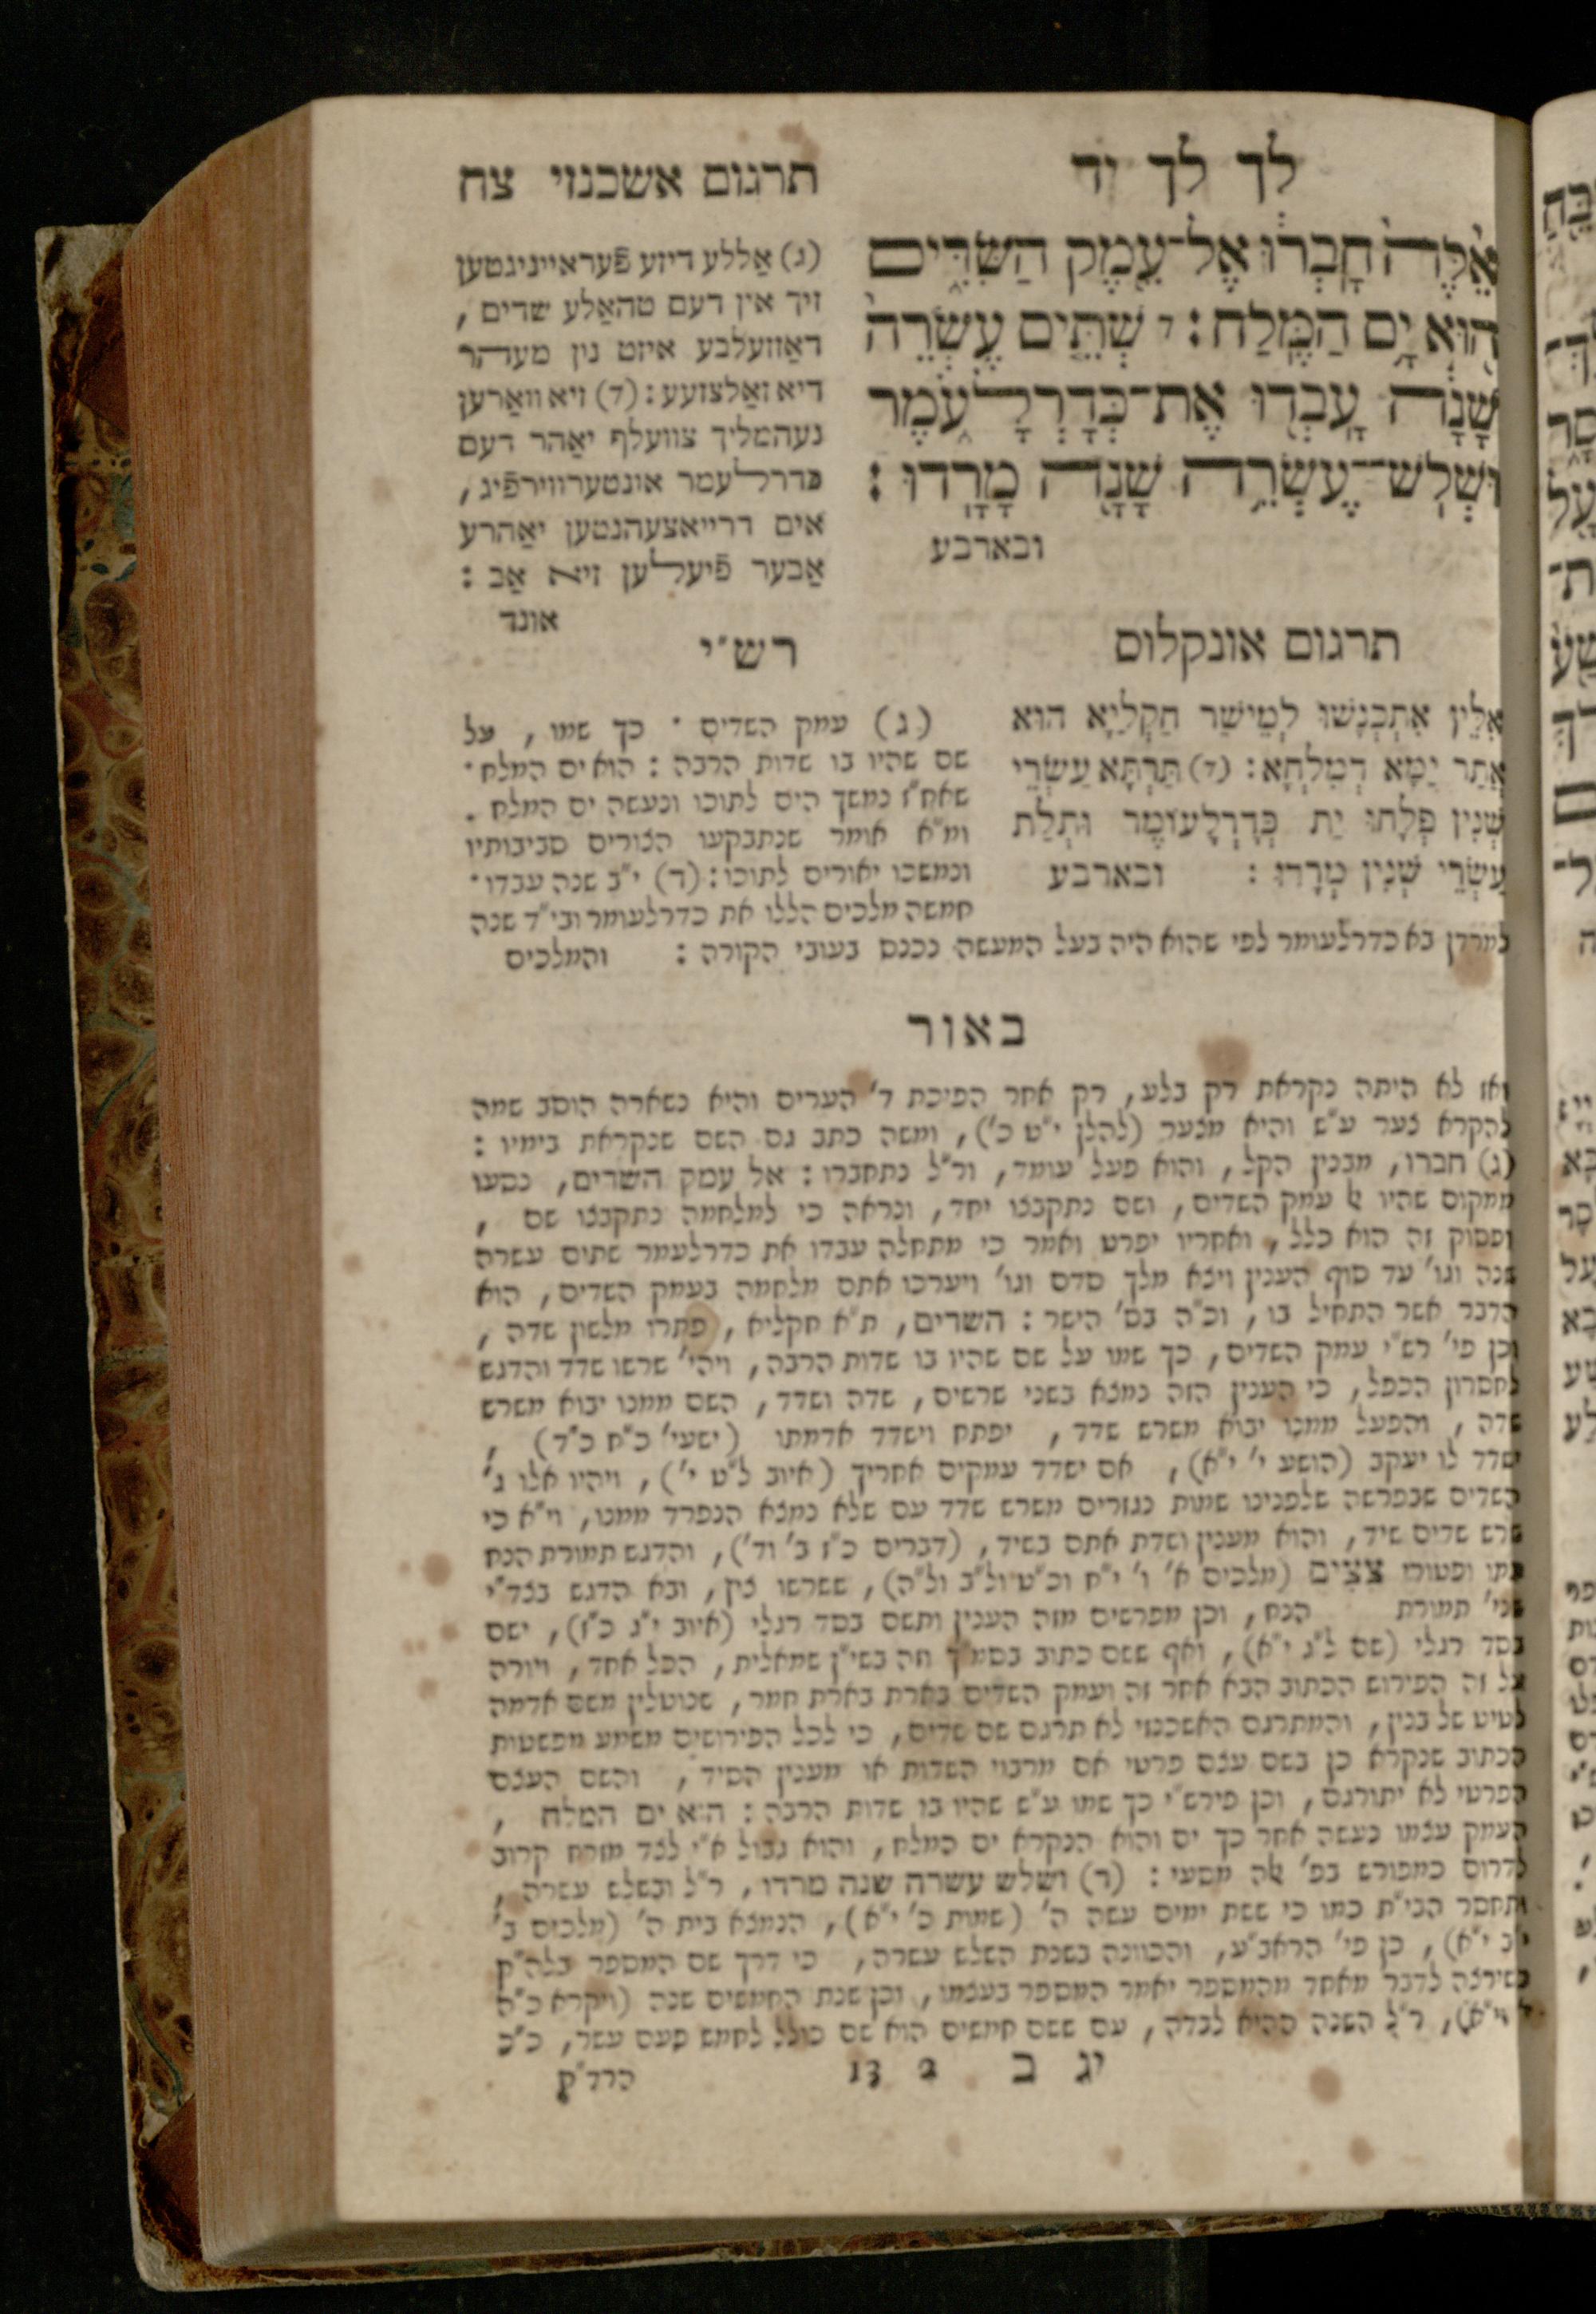 לך לך יד
תרגום אשכנזי צח
אֵלֶּה חָבְרוּ אֶל־עֵמֶק הַשִּׂדִּים
הוּא יָם הַמֶּלַח: ד שְׁתֵּים עֶשְׂרֵה
שָׁנָה עָבְדוּ אֶת־כְּדָרְלָעֹמֶר
וּשְׁלֹשׁ־עֶשְׂרֵה שָׁנָה מָרָדוּ:
ובארבע
(ג) אַללע דיזע פֿעראייניגטען
זיך אין דעם טהאַלע שדים,
דאַזזעלבע איזט נון מעהר
דיא זאַלצזעע: (ד) זיא וואַרען
נעהמליך צוועלף יאַהר דעם
כדרלעמר אונטערווירפֿיג,
אים דרייאצעהנטען יאַהרע
אַבער פֿיעלען זיא אַב:
אונד
תרגום אונקלוס
אִלֵּין אִתְכְּנָשׁוּ לְמֵישַׁר חַקְלַיָּא הוּא
אֲתַר יַמָּא דְמִלְחָא: (ד) תַּרְתָּא עַשְׂרֵי
שְׁנִין פְּלָחוּ יַת כְּדָרְלָעוֹמֶר וּתְלַת
עַשְׂרֵי שְׁנִין מְרָדוּ: ובארבע
רש״י
(ג) עמק השדים · כך שמו, על
שם שהיו בו שדות הרבה: הוא ים המלח ·
שאח״ז נמשך הים לתוכו ונעשה ים המלח.
ומ״א אומר שנתבקעו הצורים סביבותיו
ונמשכו יאורים לתוכו: (ד) י״ב שנה עבדו ·
חמשה מלכים הללו את כדרלעומר ובי״ד שנה
למרדן בא כדרלעומר לפי שהוא היה בעל המעשה נכנס בעובי הקורה: והמלכים
באור
ואז לא היתה נקראת רק בלע, רק אחר הפיכת ד׳ הערים והיא נשארה הוסב שמה
להקרא צער ע״ש והיא מצער (להלן י״ט כ׳), ומשה כתב גם השם שנקראת בימיו:
(ג) חברו, מבנין הקל, והוא פעל עומד, ור״ל נתחברו: אל עמק השדים, נסעו
ממקום שהיו אל עמק השדים, ושם נתקבצו יחד, ונראה כי למלחמה נתקבצו שם,
ופסוק זה הוא כלל, ואחריו יפרט ואמר כי מתחלה עבדו את כדרלעמר שתים עשרה
שנה וגו׳ עד סוף הענין ויצא מלך סדם וגו׳ ויערכו אתם מלחמה בעמק השדים, הוא
הדבר אשר התחיל בו, וכ״ה בס׳ הישר: השדים, ת״א חקליא, פתרו מלשון שדה,
וכן פי׳ רש״י עמק השדים, כך שמו על שם שהיו בו שדות הרבה, ויהי׳ שרשו שדד והדגש
לחסרון הכפל, כי הענין הזה נמצא בשני שרשים, שדה ושדד, השם ממנו יבוא משרש
שדה, והפעל ממנו יבוא משרש שדד, יפתח וישדד אדמתו (ישעי׳ כ״ח כ״ד),
ישדד לו יעקב (הושע י׳ י״א), אם ישדד עמקים אחריך (איוב ל״ט י׳), ויהיו אלו ג׳
השדים שבפרשה שלפנינו שמות נגזרים משרש שדד עם שלא נמצא הנפרד ממנו, וי״א כי
שרש שדים שיד, והוא מענין ושדת אתם בשיד, (דברים כ״ז ב׳ וד׳), והדגש תמורת הנח
כמו ופטורי צצים (מלכים א׳ ו׳ י״ח וכ״ט ול״ב ול״ה), ששרשו צוץ, ובא הדגש בצד״י
שני׳ תמורת הנח, וכן מפרשים מזה הענין ותשם בסד רגלי (איוב י״ג כ״ז), ישם
בסד רגלי (שם ל״ג י״א), ואף ששם כתוב בסמ״ך וזה בשי״ן שמאלית, הכל אחד, ויורה
על זה הפירוש הכתוב הבא אחר זה ועמק השדים בארת בארת חמר, שנוטלין משם אדמה
לטיט של בנין, והמתרגם האשכנזי לא תרגם שם שדים, כי לכל הפירושים משמע מפשטות
הכתוב שנקרא כן בשם עצם פרטי אם מרבוי השדות או מענין הסיד, והשם העצם
הפרטי לא יתורגם, וכן פירש״י כך שמו ע״ש שהיו בו שדות הרבה: הוא ים המלח,
העמק עצמו נעשה אחר כך ים והוא הנקרא ים המלח, והוא גבול א״י לצד מזרח קרוב
לדרום כמפורש בפ׳ אלה מסעי: (ד) ושלש עשרה שנה מרדו, ר״ל ובשלש עשרה,
ותחסר הבי״ת כמו כי ששת ימים עשה ה׳ (שמות כ׳ י״א), הנמצא בית ה׳ (מלכים ב׳
י״ב י״א), כן פי׳ הראב״ע, והכוונה בשנת השלש עשרה, כי דרך שם המספר בלה״ק
כשירצה לדבר מאחד מהמספר יאמר המספר בעצמו, וכן שנת החמשים שנה (ויקרא כ״ה
י׳ וי״א), ר״ל השנה ההיא לבדה, עם ששם חמשים הוא שם כולל לחמש פעם עשר, כ״כ
יג ב 2 13
הרד״ק